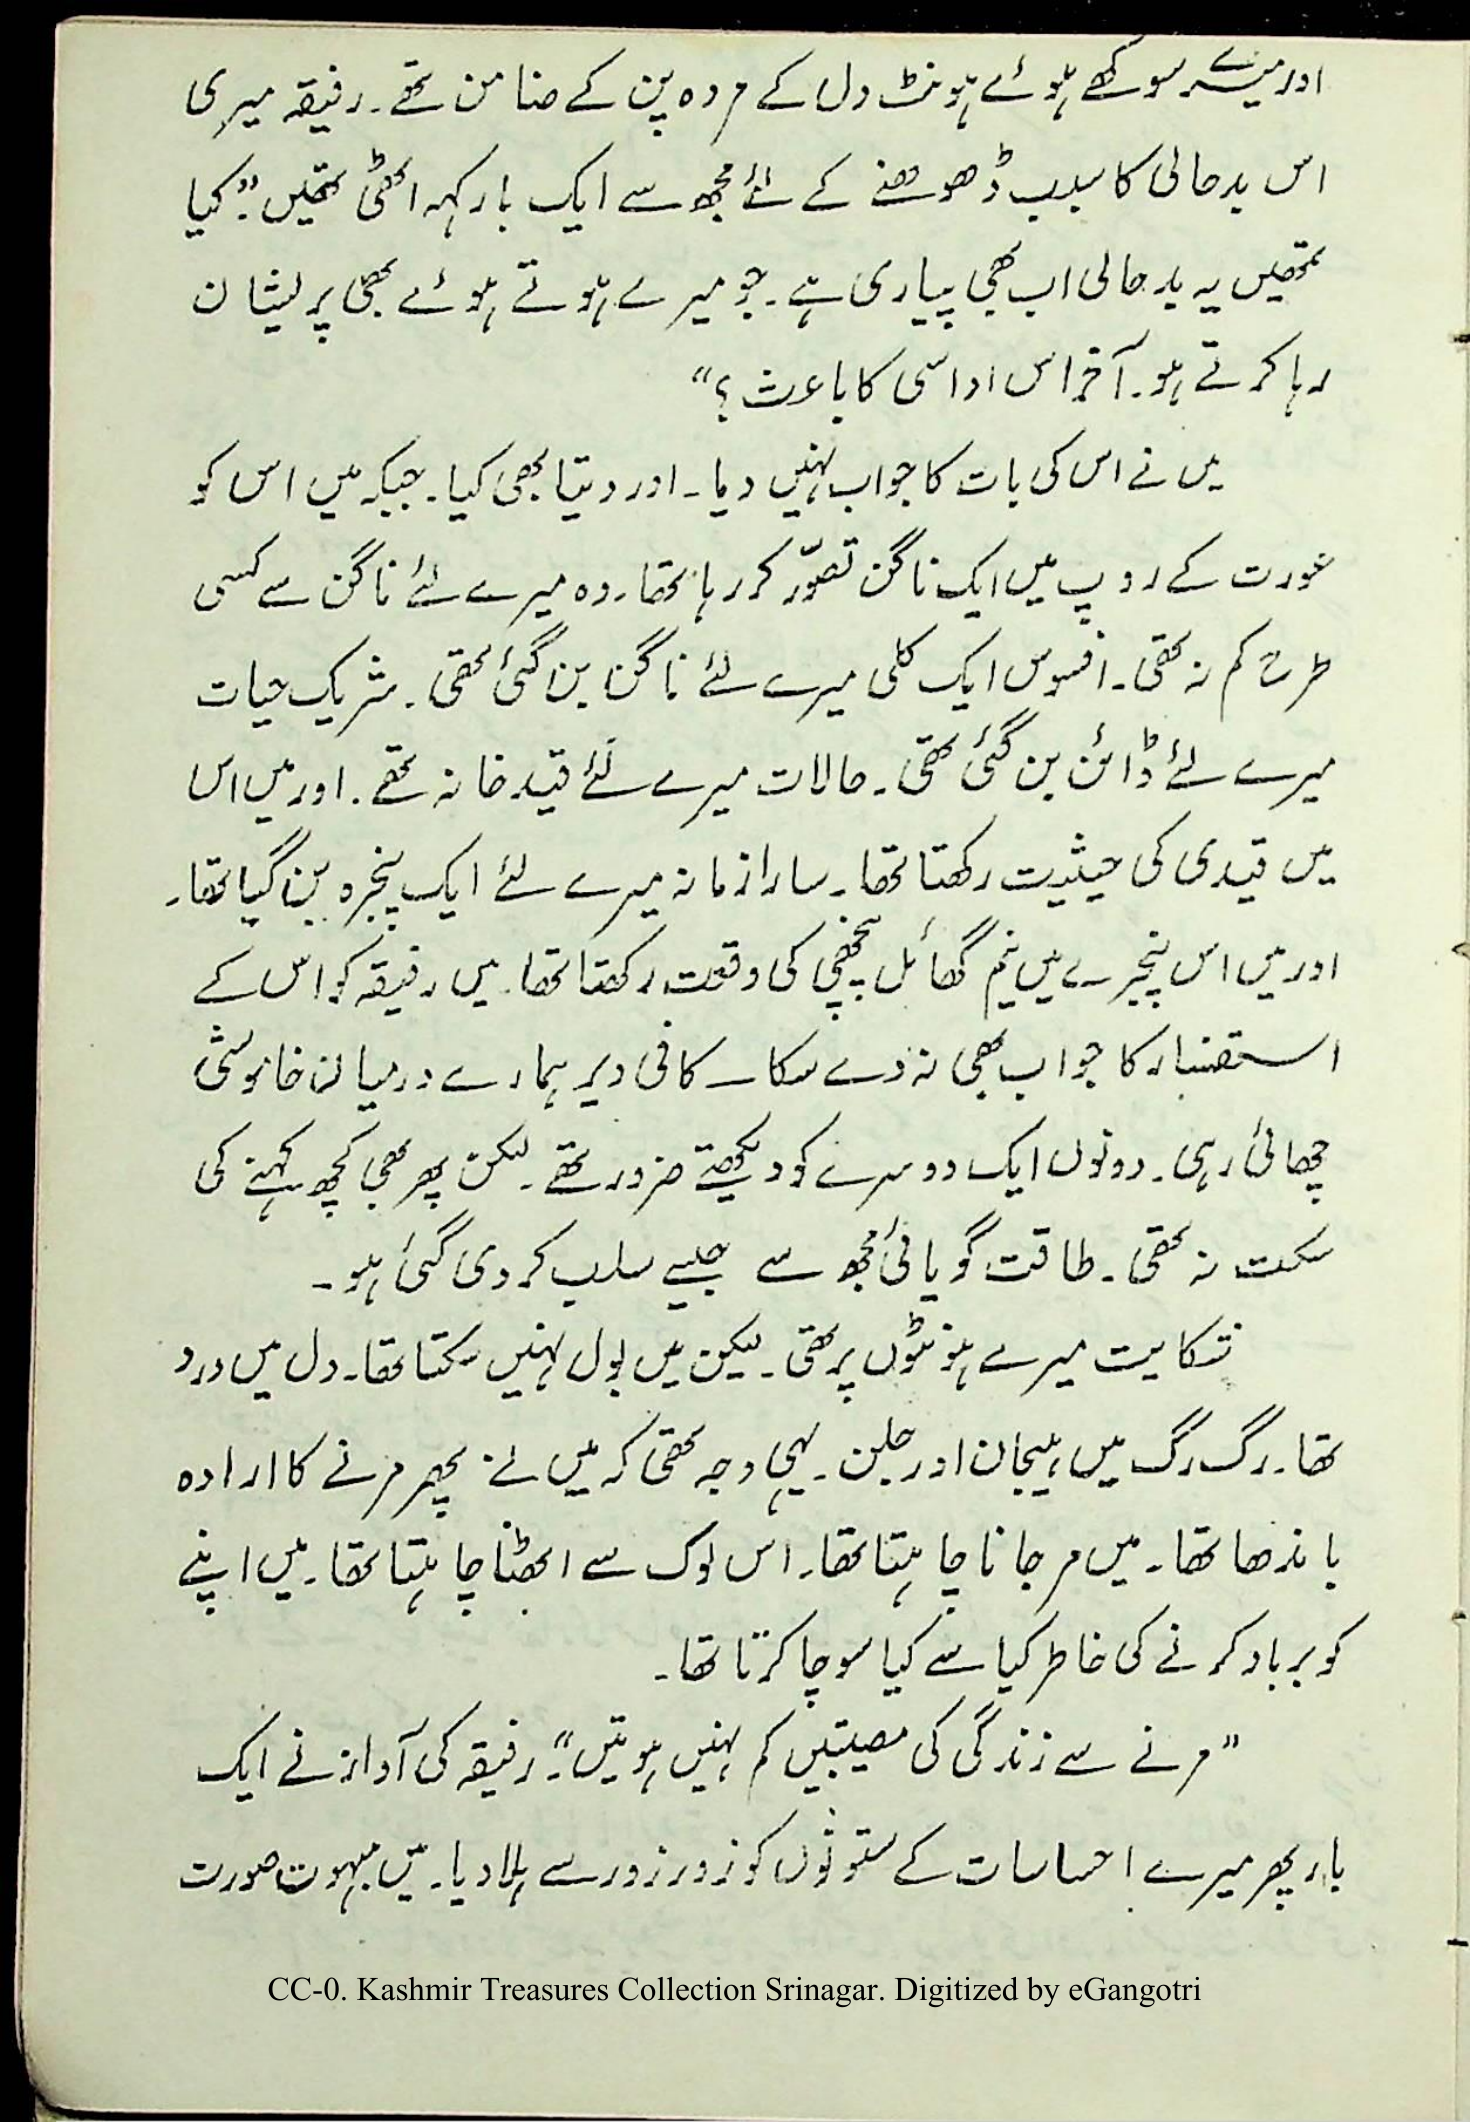 اور میرے سوکھے ہوئے ہونٹ دل کے مردہ پن کے ضامن تھے۔ رفیقہ میری
اس بدحالی کا سبب ڈھونڈھنے کے لئے مجھ سے ایک بار کہہ اٹھی تھیں ”کیا
تمھیں یہ بدحالی اب بھی پیاری ہے۔ جو میرے ہوتے ہوئے بھی پریشان
رہا کرتے ہو۔ آخر اس اداسی کا باعث؟“
میں نے اس کی بات کا جواب نہیں دیا۔ اور دیتا بھی کیا۔ جبکہ میں اس کو
عورت کے روپ میں ایک ناگن تصوّر کر رہا تھا۔ وہ میرے لئے ناگن سے کسی
طرح کم نہ تھی۔ افسوس ایک کلی میرے لئے ناگن بن گئی تھی۔ شریک حیات
میرے لئے ڈائن بن گئی تھی۔ حالات میرے لئے قید خانہ تھے۔ اور میں اس
میں قیدی کی حیثیت رکھتا تھا۔ سارا زمانہ میرے لئے ایک پنجرہ بن گیا تھا۔
اور میں اس پنجرے میں نیم گھائل پنچھی کی وقعت رکھتا تھا۔ میں رفیقہ کو اس کے
استفسار کا جواب بھی نہ دے سکا۔ کافی دیر ہمارے درمیان خاموشی
چھائی رہی۔ دونوں ایک دوسرے کو دیکھتے ضرور تھے۔ لیکن پھر بھی کچھ کہنے کی
سکت نہ تھی۔ طاقت گویائی مجھ سے جیسے سلب کر دی گئی ہو۔
شکایت میرے ہونٹوں پر تھی۔ لیکن میں بول نہیں سکتا تھا۔ دل میں درد
تھا۔ رگ رگ میں ہیجان اور جلن۔ یہی وجہ تھی کہ میں نے پھر مرنے کا ارادہ
باندھا تھا۔ میں مر جانا چاہتا تھا۔ اس لوک سے اٹھنا چاہتا تھا۔ میں اپنے
کو برباد کرنے کی خاطر کیا سے کیا سوچا کرتا تھا۔
”مرنے سے زندگی کی مصیبتیں کم نہیں ہوتیں“۔ رفیقہ کی آواز نے ایک
بار پھر میرے احساسات کے ستونوں کو زور زور سے ہلا دیا۔ میں مبہوت صورت
CC-0. Kashmir Treasures Collection Srinagar. Digitized by eGangotri